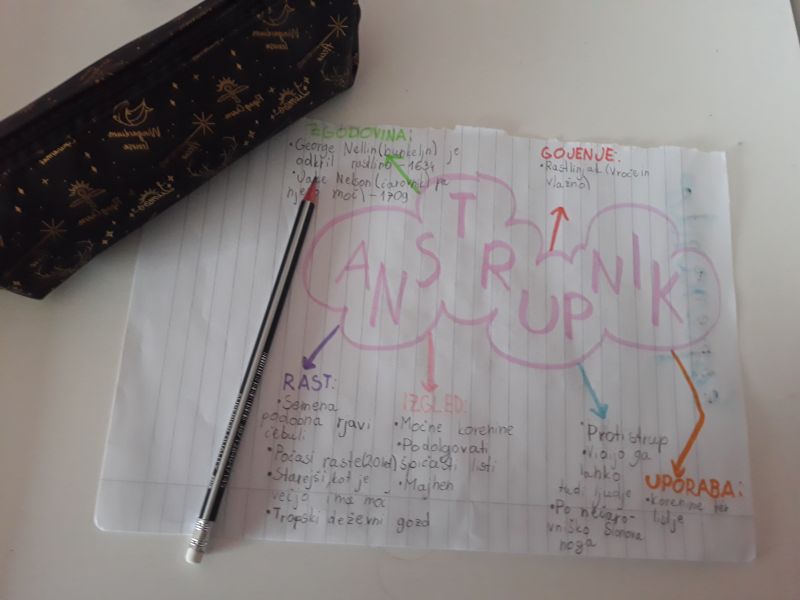 ZGODOVINA:
• George Nellin (bunkeljn) je
odkril rastlino - 1634
Nelson (čarovnik) pa
moč) - 1709
GOJENJE:
• Rastlinjak (vroče in
vlažno)
ANSTRUPNIK
RAST:
• Semena
podobna rjavi
čebuli
• Počasi raste
• Starejši kot je
večjo ima moč
• Tropski deževni gozd
IZGLED:
• Močne korenine
• Podolgovati
špičasti listi
• Majhen
• Protistrup
ga
lahko
tudi ljudje
• Po nečaro-
vniško Slonova
noga
UPORABA:
• korenine ter
listje
Wingardium
Leviosa